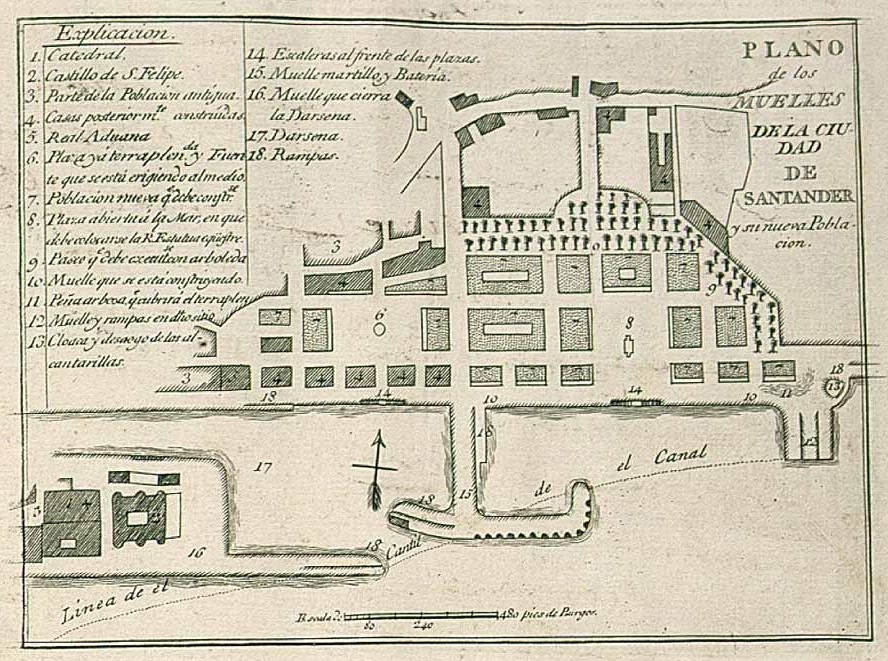 Explicacion.
1. Catedral.
2. Castillo de S. Felipe.
3. Parte de la Poblacion antigua.
4. Casas posterior m.te construidas.
5. Real Aduana
6. Plaza yá terraplen.da y Fuen
te que se está erigiendo al medio.
7. Poblacion nueva q.e debe constr.se
8. Plaza abierta á la Mar, en que
debe colocarse la R. Estatua eqüestre.
9. Paseo q.e debe con arboleda
10. Muelle que se está construyendo.
11. Peña q. cubrirá el terraplen
12. Muelle y rampas en dho sitio
13. Cloaca y desaogo de las al-
cantarillas.
14. Escaleras al frente de las plazas.
15. Muelle martillo y Bateria.
16. Muelle que cierra
la Darsena.
17. Darsena.
18. Rampas.
PLANO
de los
MUELLES
DE LA CIU-
DAD
DE
SANTANDER
y su nueva Pobla-
cion.
4
4
4
4
3
4
9
7
7
7
7
6
7
7
7
8
7
7
9
3
4
4
4
4
4
7
7
7
7
7
7
11
18
13
18
14
10
14
10
18
12
17
18
15
5
4
2
16
18
Linea de el Cantil de el Canal
Escala de 80 240 480 pies de Burgos.